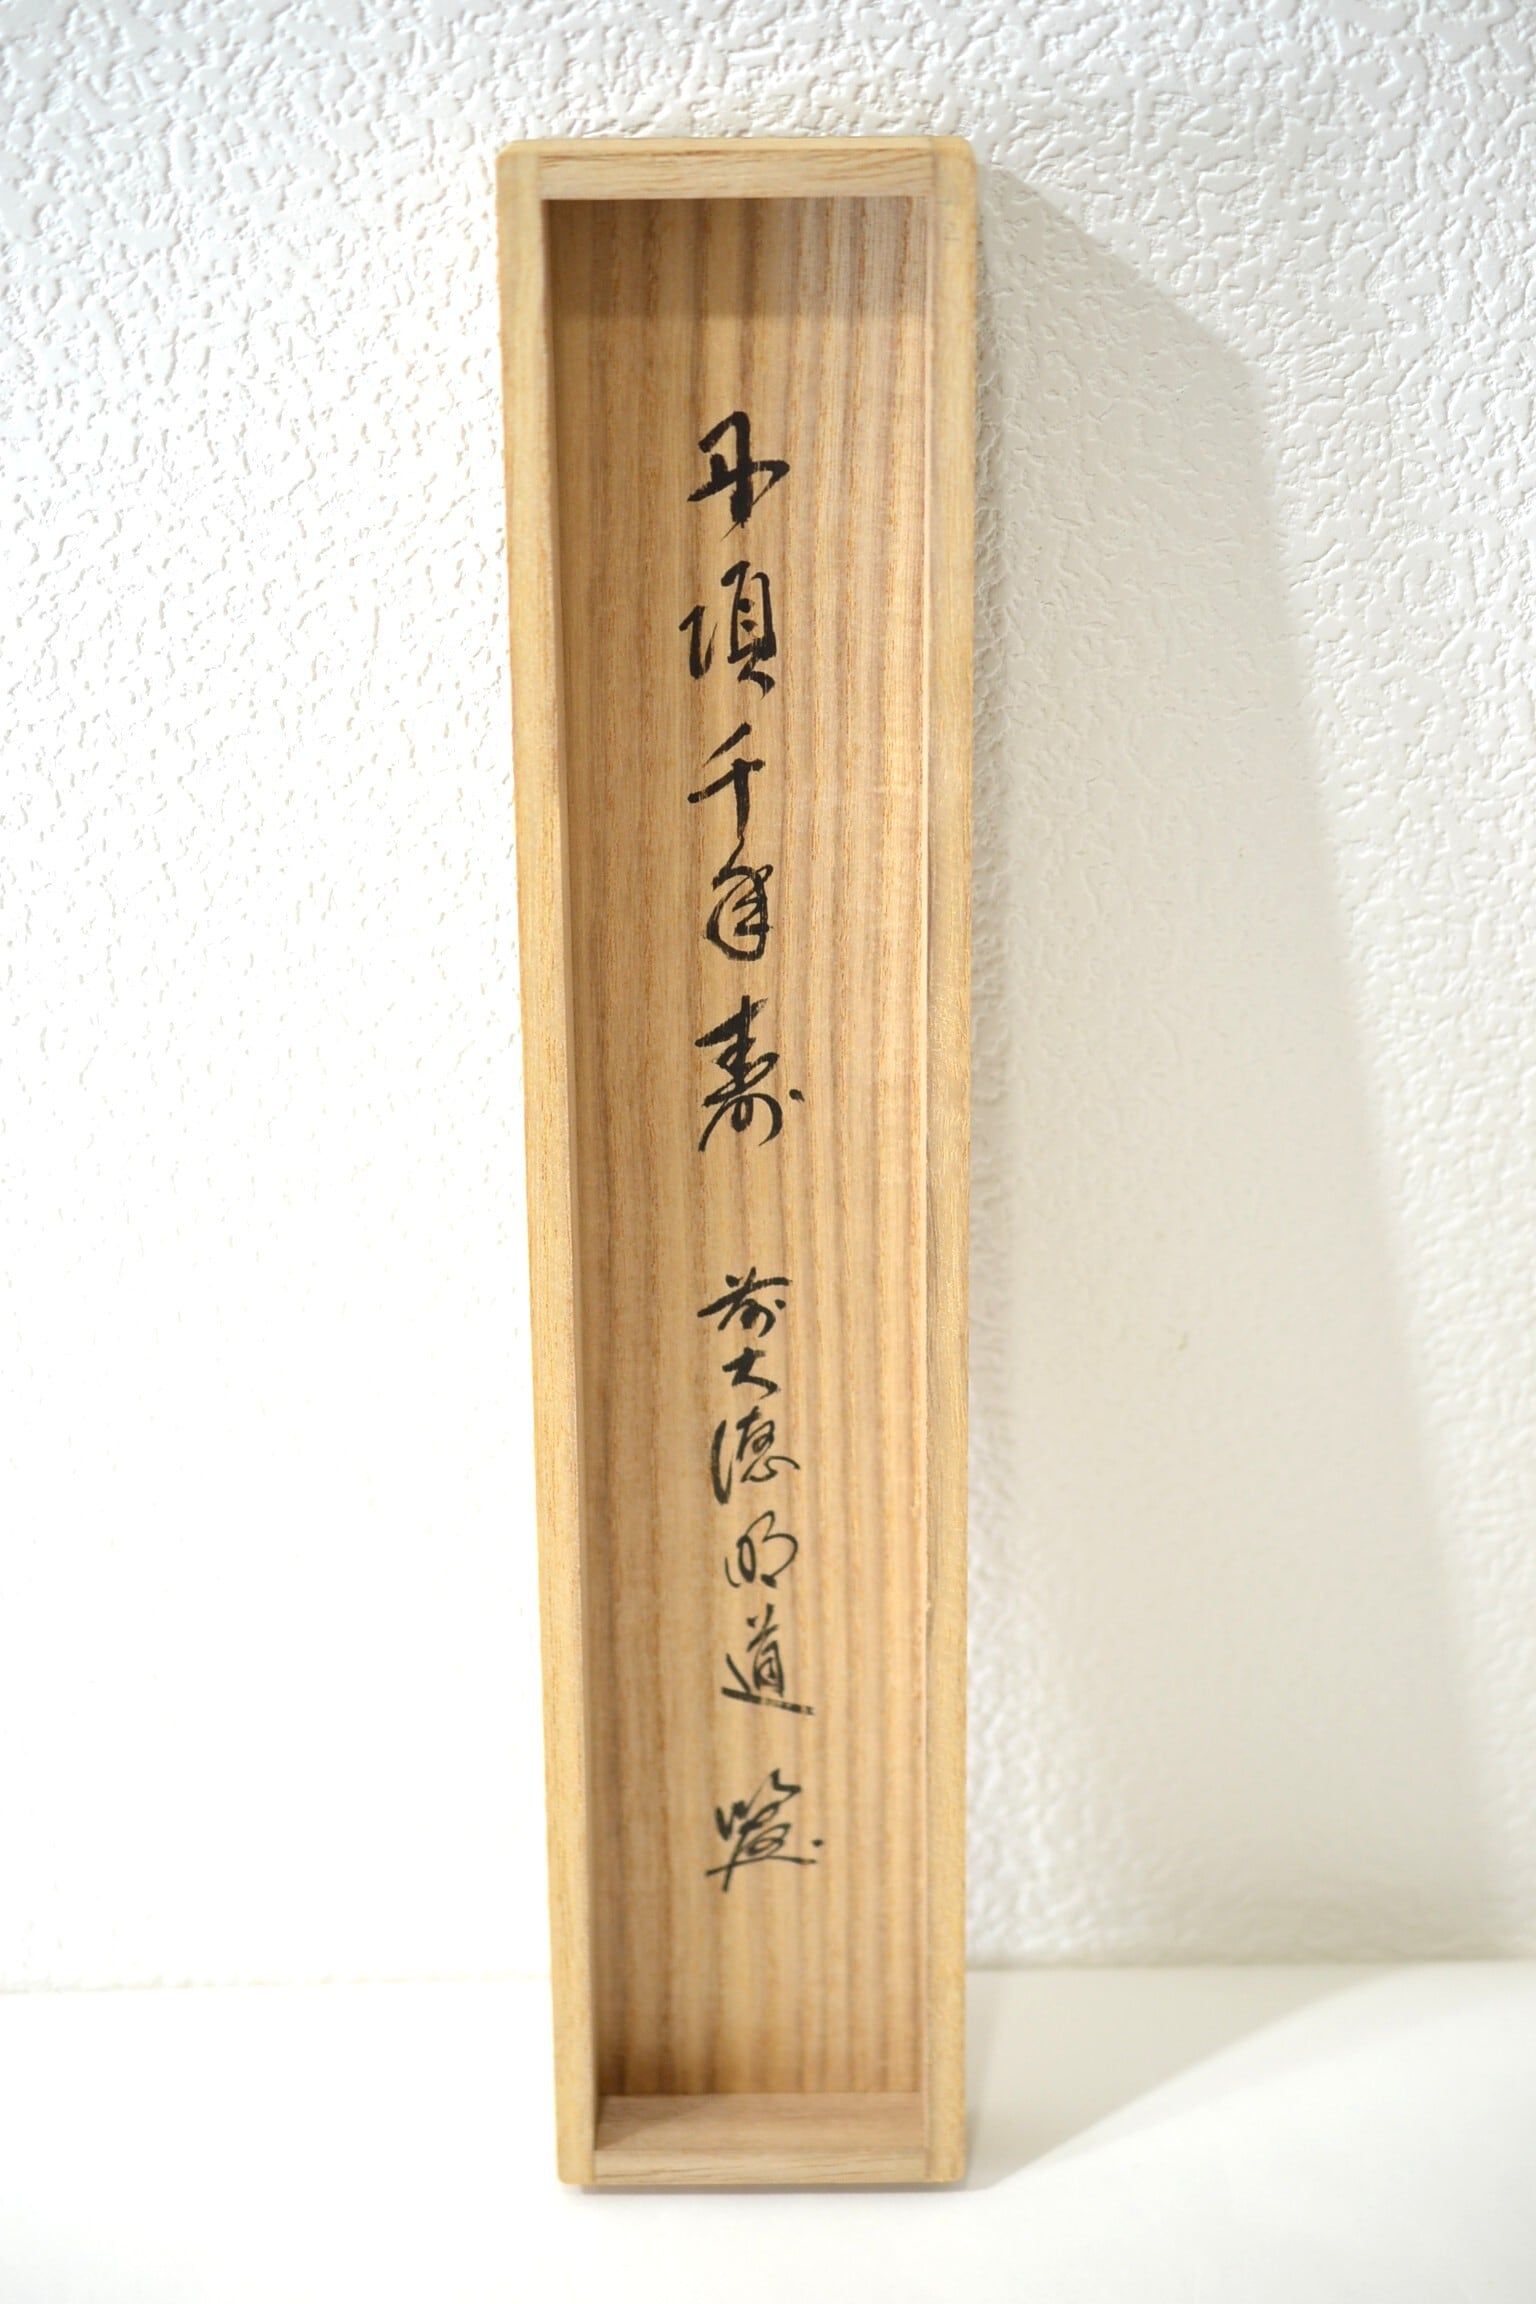 丹頂千年寿 前大徳明道